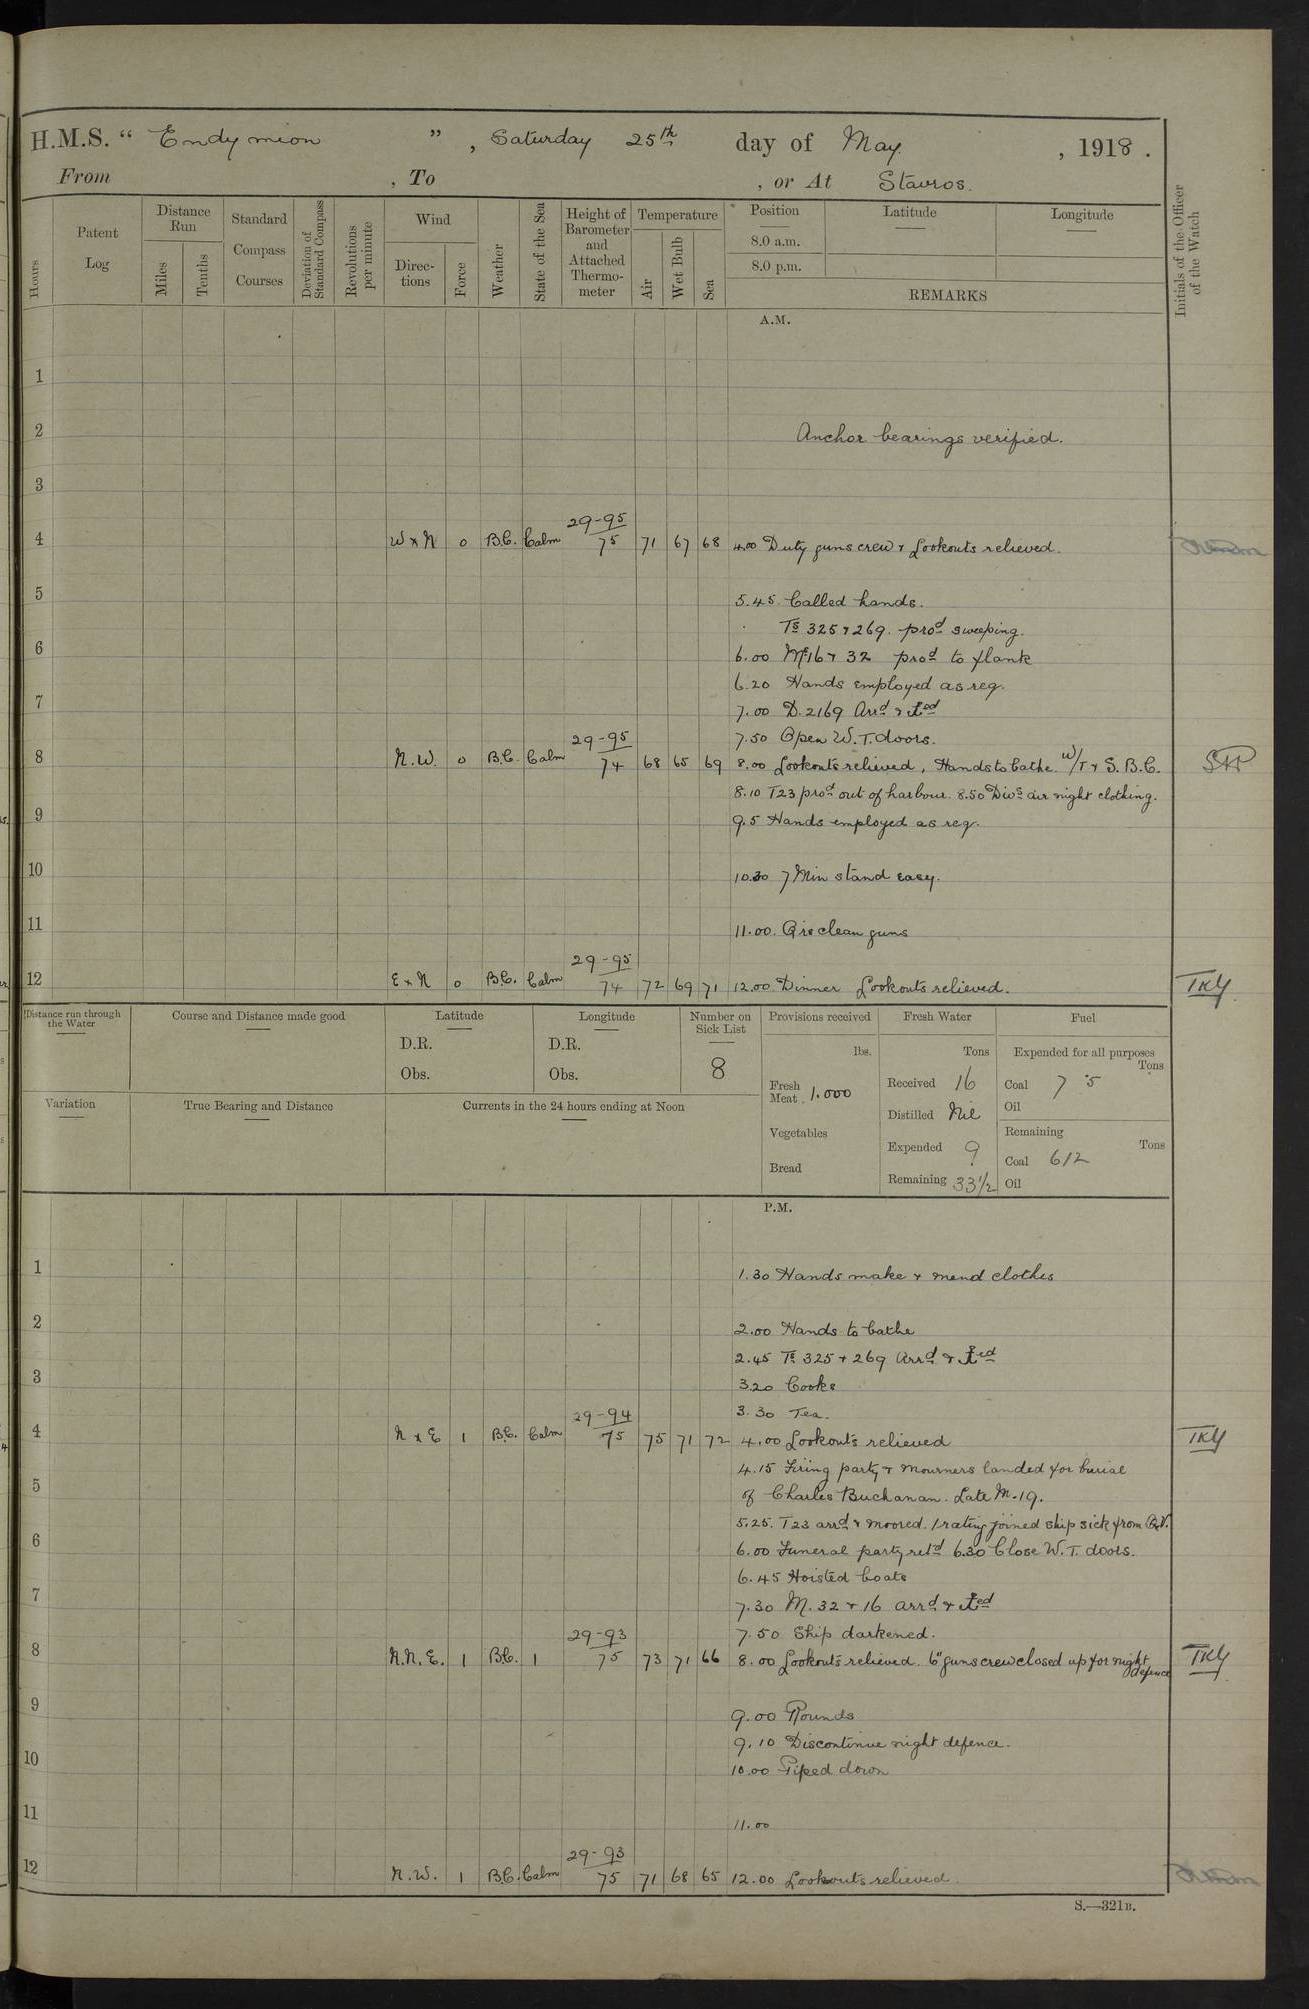 H.M.S. “ Endymion ”, Saturday 25th day of May. , 1918.
From , To , or At Stavros.
Hours
Patent Log
Distance Run
Miles
Tenths
Standard Compass Courses
Deviation of Standard Compass
Revolutions per minute
Wind
Direc-tions
Force
Weather
State of the Sea
Height of Barometer and Attached Thermo-meter
Temperature
Air
Wet Bulb
Sea
Position
8.0 a.m.
8.0 p.m.
Latitude
Longitude
REMARKS
Initials of the Officer of the Watch
A.M.
1
2 Anchor bearings verified.
3
29-95
4 W x N 0 B.C. Calm 75 71 67 68 4.00 Duty guns crew & Lookouts relieved.
5 5.45. Called hands.
Ts 325 & 269. prod sweeping.
6 6.00 Ms 16 & 32 prod to flank
6.20 Hands employed as req.
7 7.00 D. 2169 Arrd &
7.50 Open W.T. doors.
29-95
8 N.W. 0 B.C. Calm 74 68 65 69 8.00 Lookouts relieved, Hands to bathe. W/T & S. B.C.
8.10 T23 prod out of harbour. 8.50 Divs air night clothing.
9 9.5 Hands employed as req.
10 10.30 7 Min stand easy.
11 11.00. Qrs clean guns
29-95
12 E x N 0 B.C. Calm 74 72 69 71 12.00 Dinner Lookouts relieved. TKY
Distance run through the Water
Course and Distance made good
Latitude
D.R.
Obs.
Longitude
D.R.
Obs.
Number on Sick List
8
Provisions received
lbs.
Fresh Meat 1.000
Vegetables
Bread
Fresh Water
Tons
Received 16
Distilled Nil
Expended 9
Remaining 33½
Fuel
Expended for all purposes
Tons
Coal 7·5
Oil
Remaining
Tons
Coal 612
Oil
Variation
True Bearing and Distance
Currents in the 24 hours ending at Noon
P.M.
1 1.30 Hands make & mend clothes
2 2.00 Hands to bathe
2.45 Ts 325 & 269 arrd &
3 3.20 Cooks
3.30 Tea.
29-94
4 N x E 1 B.C. Calm 75 75 71 72 4.00 Lookouts relieved TKY
4.15 Firing party & mourners landed for burial
5 of Charles Buchanan. Late M.19.
5.25. T23 arrd & moored. 1 rating joined ship sick from
6 6.00 Funeral party retd 6.30 Close W.T. doors.
6.45 Hoisted boats
7 7.30 M. 32 & 16 arrd &
7.50 Ship darkened.
29-93
8 N.N.E. 1 B.C. 1 75 73 71 66 8.00 Lookouts relieved. 6" guns crew closed up for night defence TKY
9 9.00 Rounds
9.10 Discontinue night defence.
10 10.00 Piped down
11 11.00
29-93
12 N.W. 1 B.C. Calm 75 71 68 65 12.00 Lookouts relieved.
S.—321B.